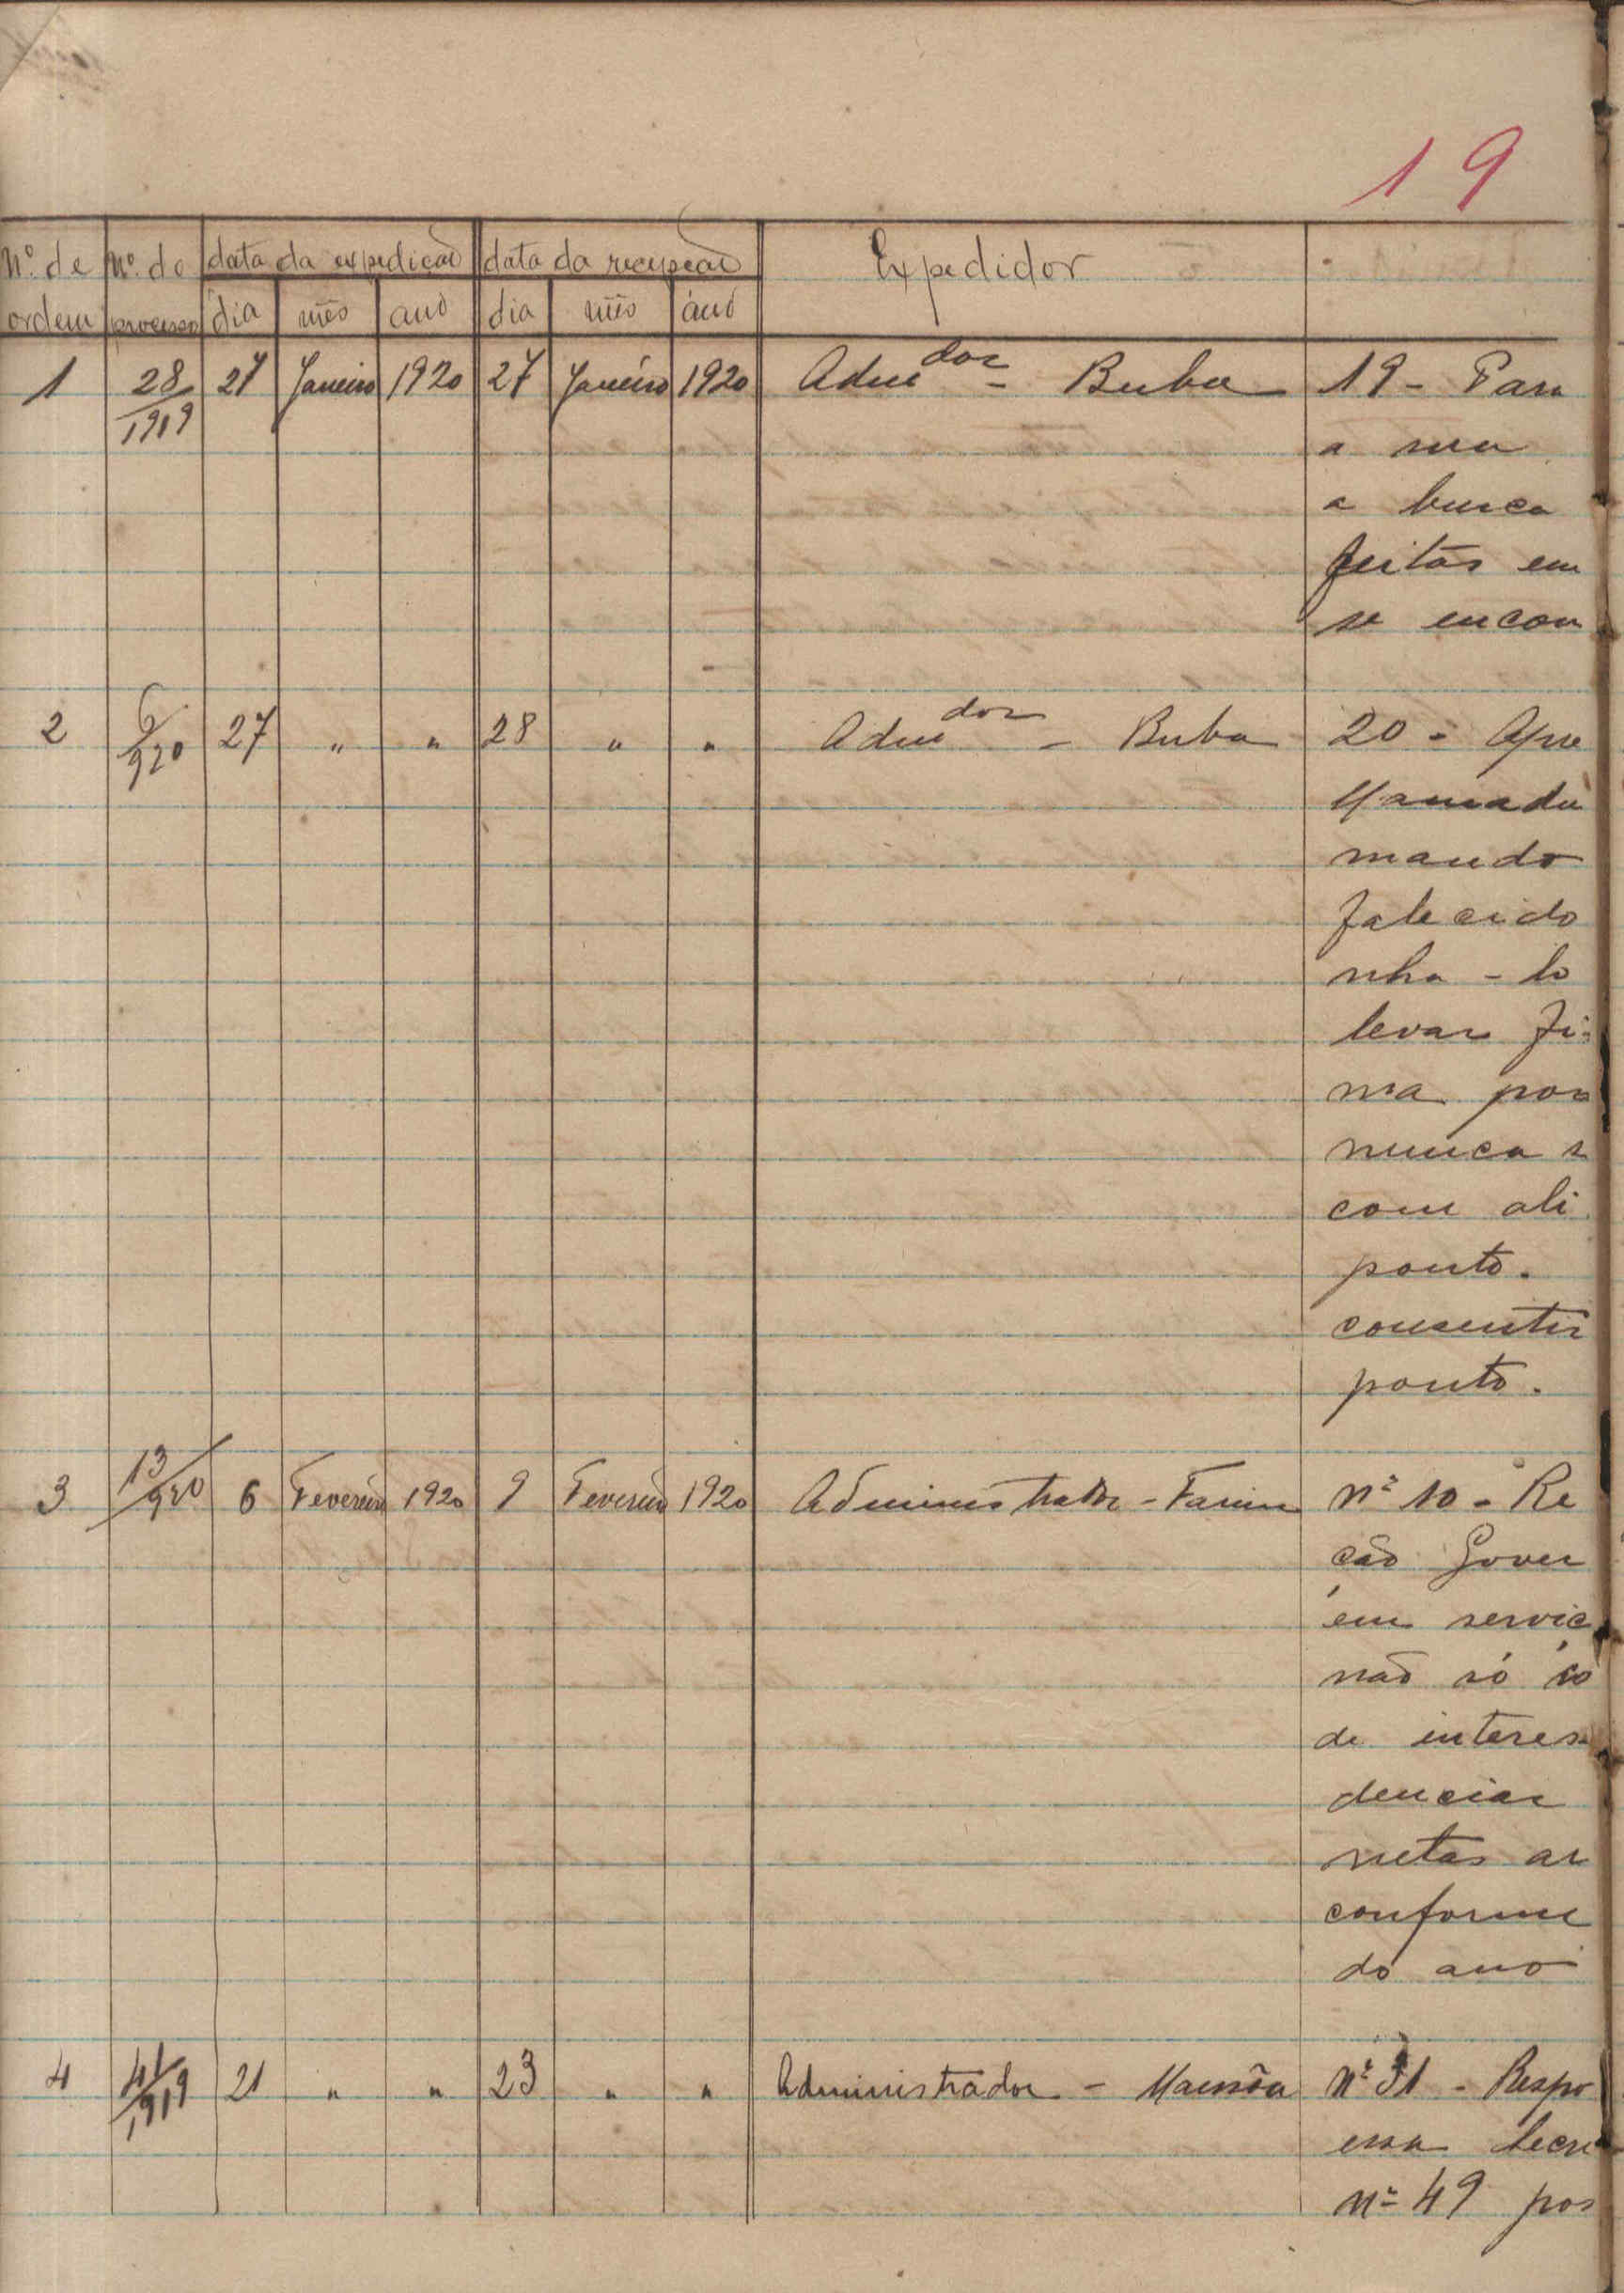 19
Nº de Nº do data da expedição data da recepção Expedidor
ordem processo dia mês ano dia mês ano
1 28/1919 27 Janeiro 1920 27 Janeiro 1920 Admdor - Buba 19 - Para
a
a busca
feitas em
se encon
2 6/920 27 " " 28 " " Admdor - Buba 20 - Apre
Mamadu
mando
falecido
nha - lo
levar fi-
ma por
nunca s
com ali
ponto.
consentir
ponto.
3 13/920 6 Fevereiro 1920 9 Fevereiro 1920 Administrador - Farim nº 10 - Re
ção Gover
em servic
não só co
de interes
denciar
netas ar
conforme
do ano
4 41/1919 21 " " 23 " " Administrador - Mansôa nº 31 - Respo
essa Secre
nº 49 pos